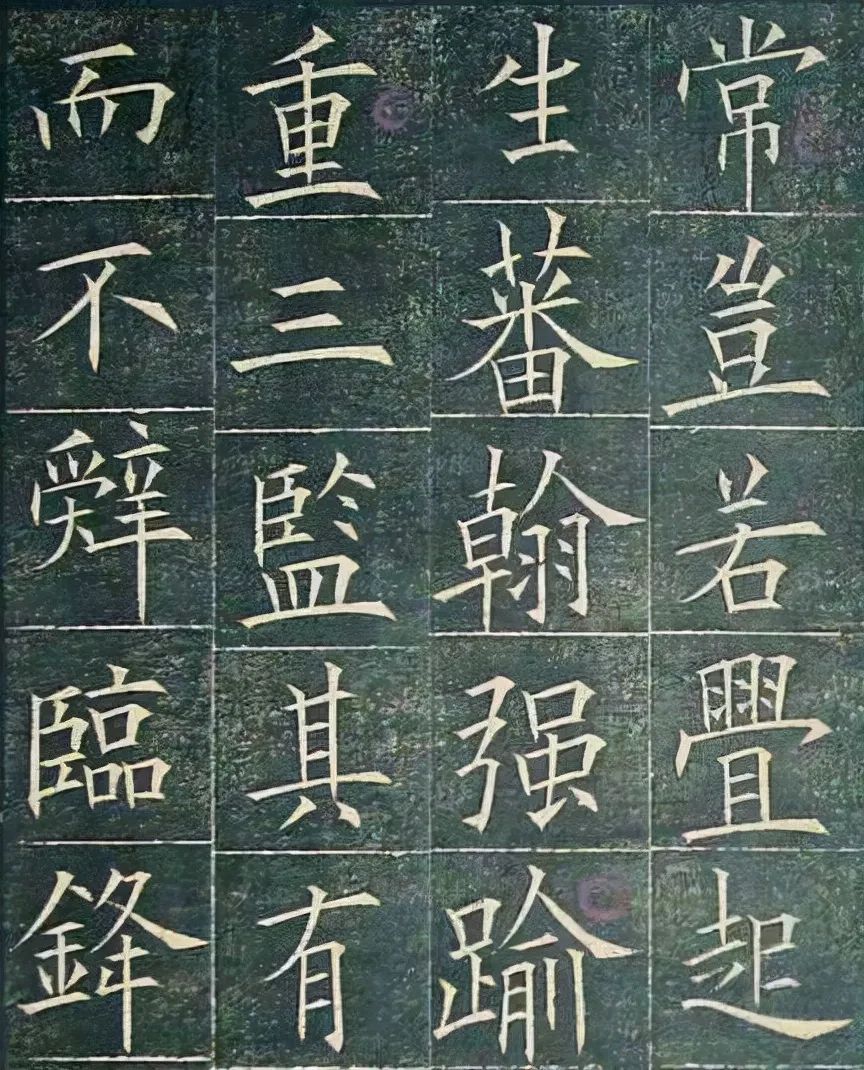 常豈若疊起
生蕃翰强踰
重三監其有
而不辤臨鋒